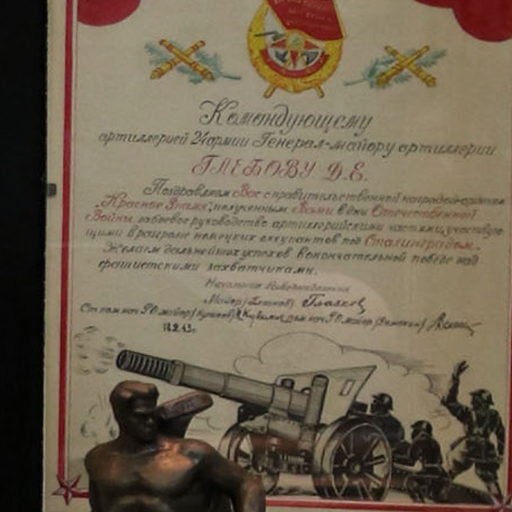 Командующему
артиллерией 24 армии Генерал-майору артиллерии
ГЛЕБОВУ Д.Е.
Поздравляем Вас с правительственной наградой орденом
"Красное Знамя", полученным Вами в дни Отечественной
Войны за боевое руководство артиллерийскими частями, участвую-
щими в разгроме немецких оккупантов под Сталинградом.
Желаем дальнейших успехов в окончательной победе над
фашистскими захватчиками.
Майор
18.2.43г.